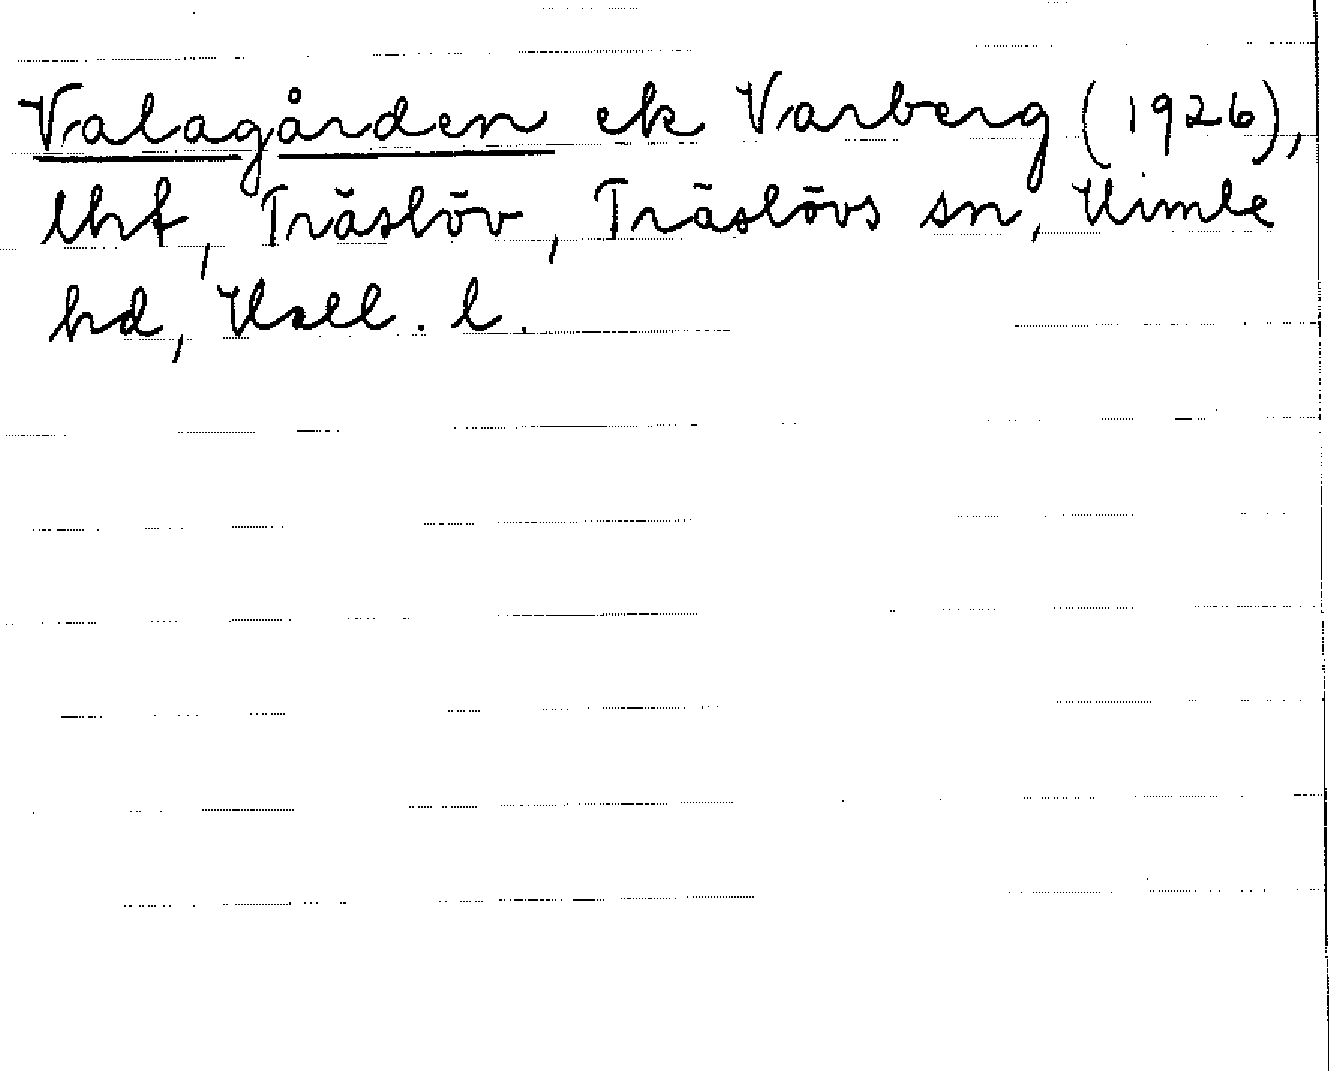 Valagården ek Varberg (1926),
lht, Träslöv, Träslövs sn, Himle
hd, Hall. l.